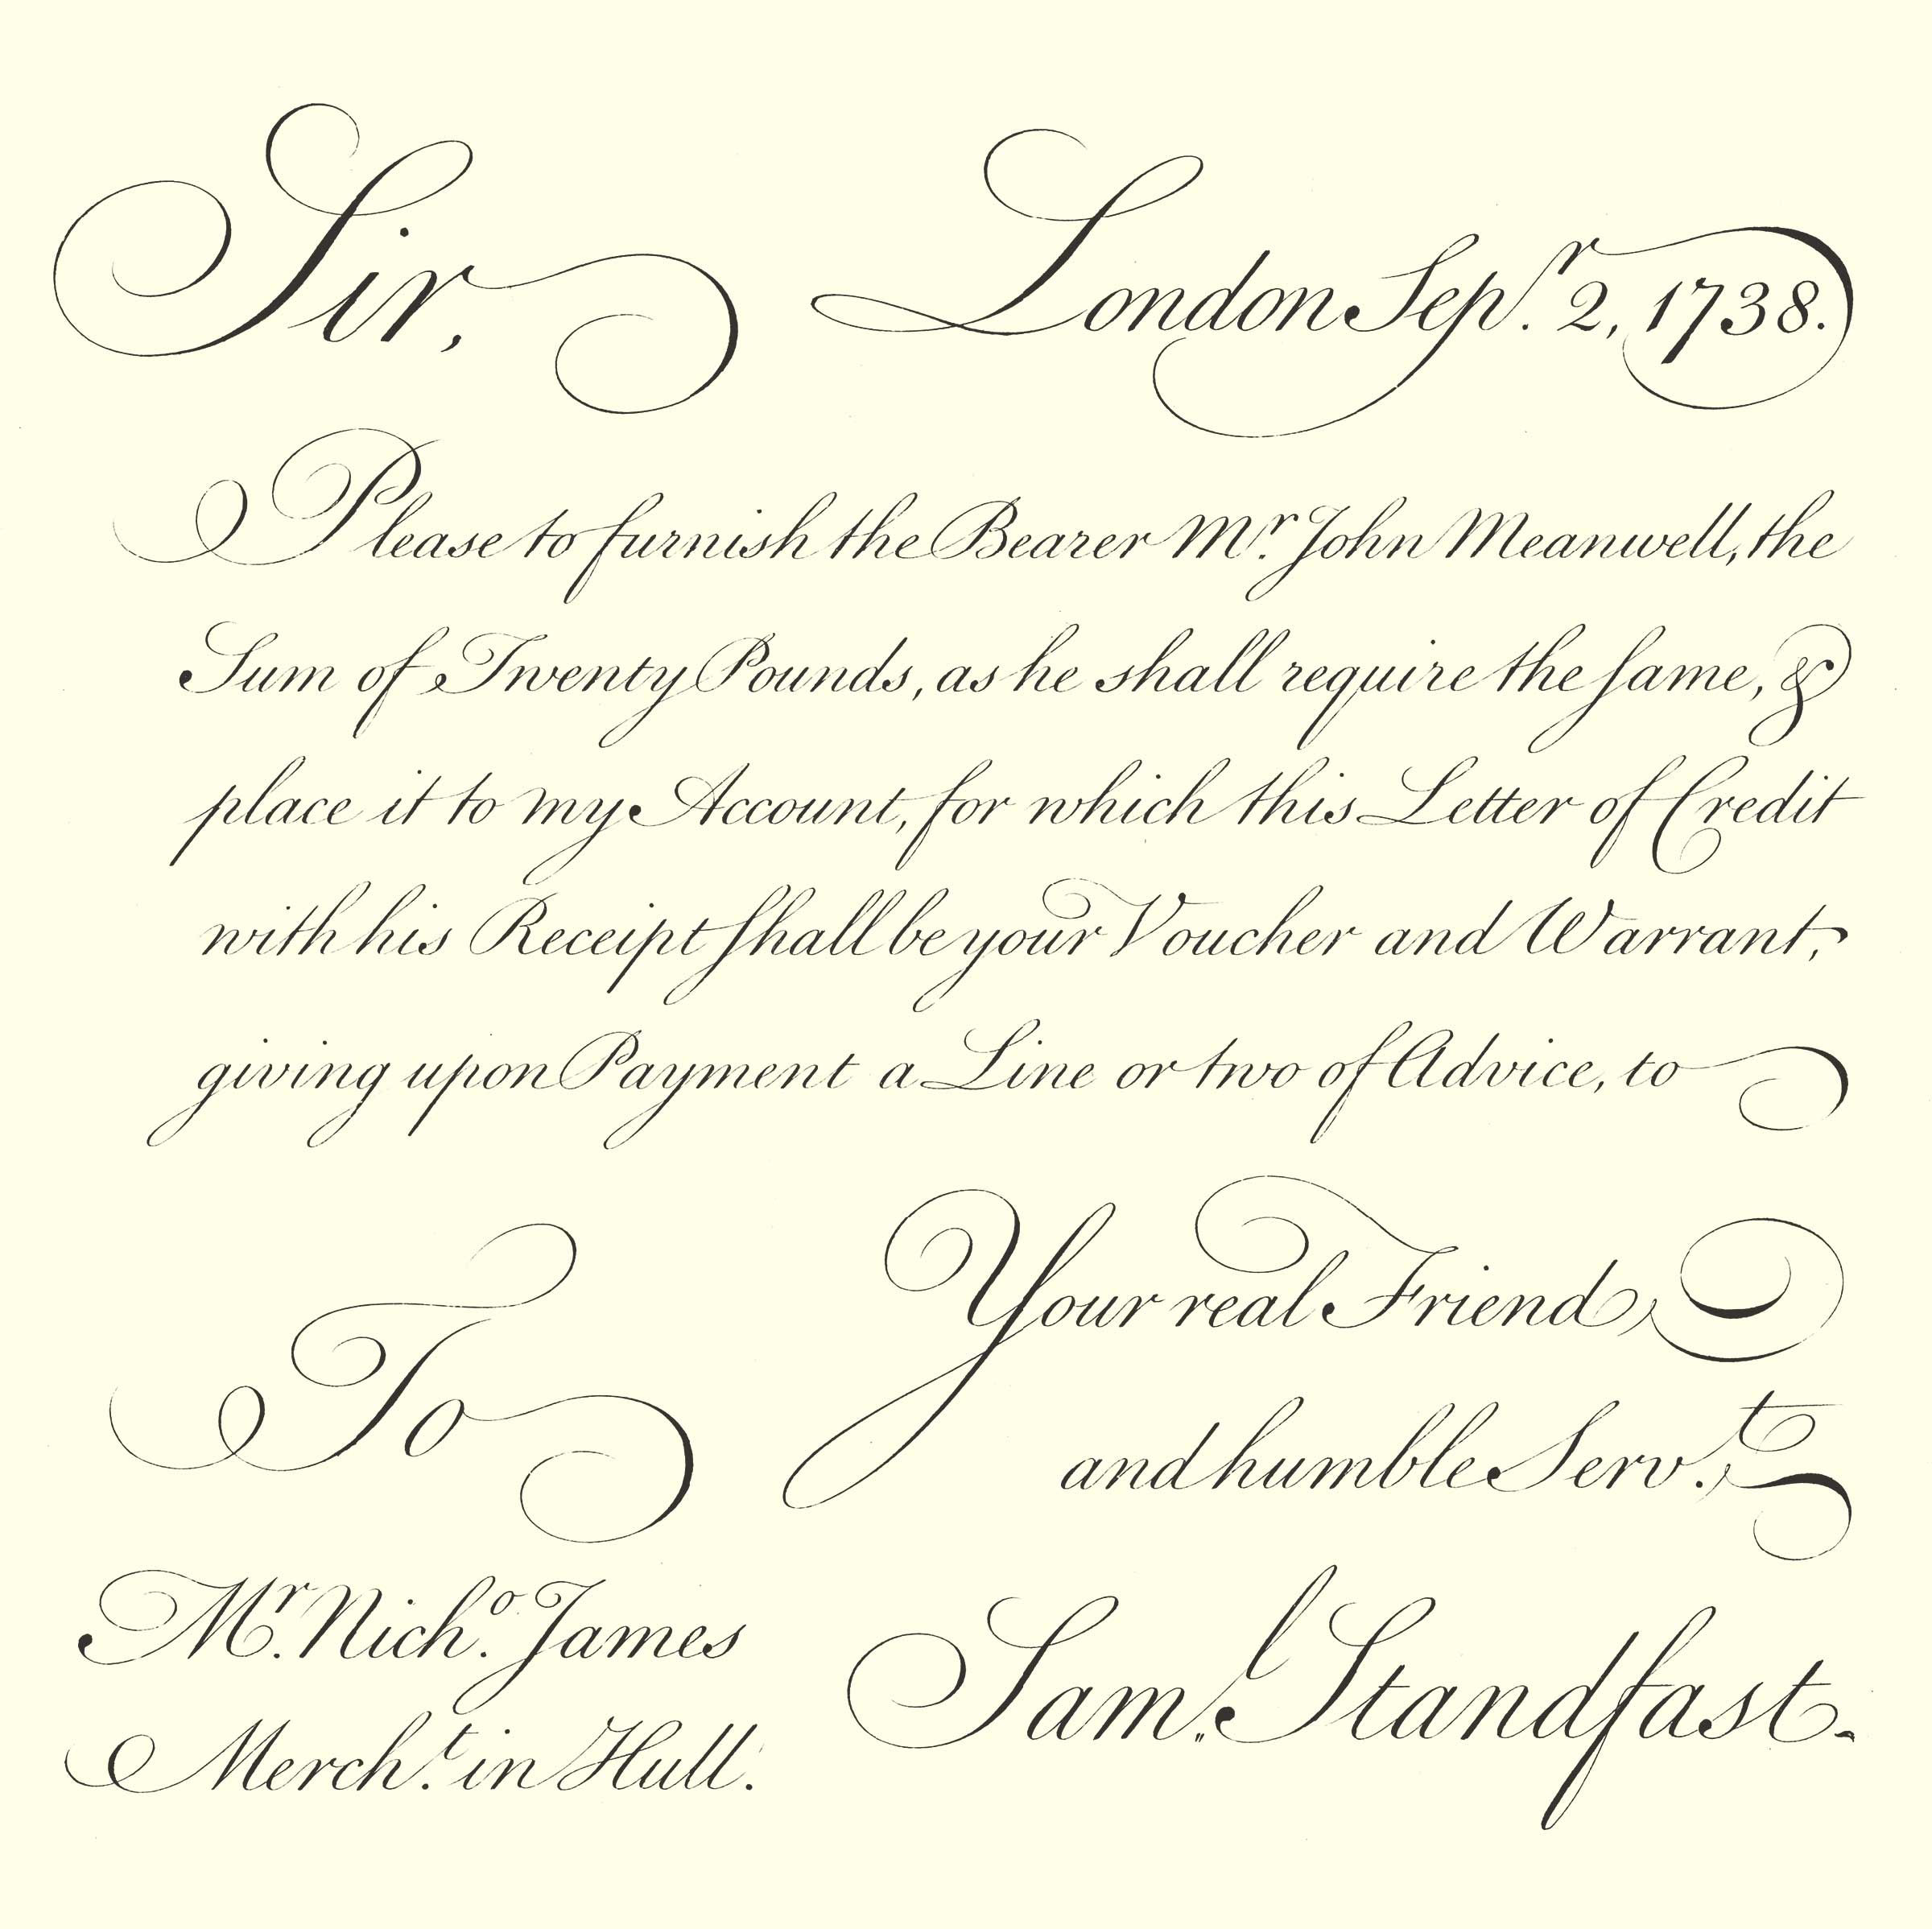 Sir, London Sep.ʳ 2, 1738.
Please to furnish the Bearer M.ʳ John Meanwell, the
Sum of Twenty Pounds, as he shall require the ſame, &
place it to my Account, for which this Letter of Credit
with his Receipt ſhall be your Voucher and Warrant,
giving upon Payment a Line or two of Advice, to
Your real Friend,
and humble Serv.ᵗ,
To
M.ʳ Nich.º James
Merch.ᵗ in Hull.
Sam.ˡ Standfast.